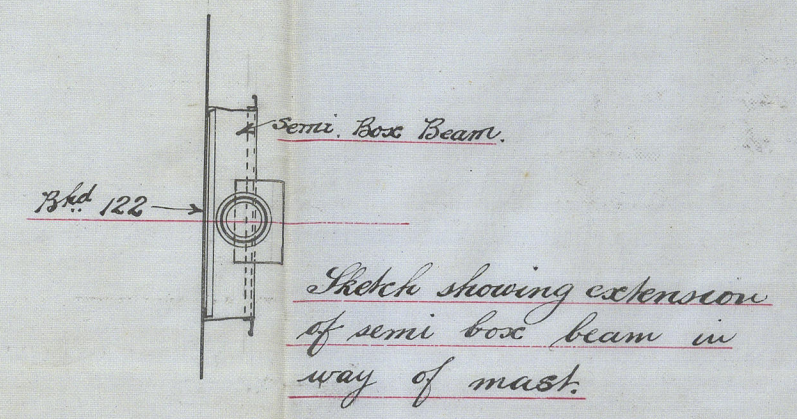 Semi. Box Beam.
Bhd 122
Sketch showing extension
of semi box beam in
way of mast.